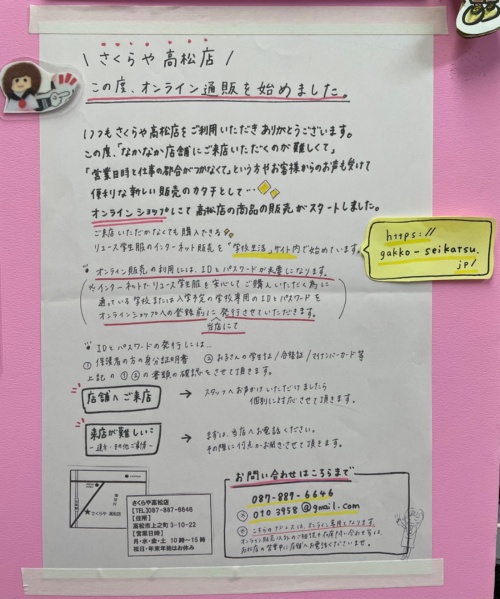 \ さくらや高松店 /
この度、オンライン通販を始めました。
いつもさくらや高松店をご利用いただきありがとうございます。
この度、「なかなか店舗にご来店いただくのが難しくて」
「営業日時と仕事の都合がつかなくて」という方やお客様からのお声も受けて
便利な新しい販売のカタチとして…
オンラインショップにて高松店の商品の販売がスタートしました。
ご来店いただかなくても購入できる
リユース学生服のインターネット販売を"学校生活"サイト内で始めています。
https://
gakko-seikatsu.
jp/
オンライン販売の利用には、IDとパスワードが必要になります。
※インターネットでリユース学生服を安心してご購入いただく為に
通っている学校または入学予定の学校専用のIDとパスワードを
オンラインショップへの登録前に発行させていただきます。
当店にて
IDとパスワードの発行には…
①保護者の方の身分証明書 ②お子さんの学生証/合格証/マイナンバーカード等
上記の①②の書類の確認をさせて頂きます。
店舗へご来店 → スタッフへお声かけいただけましたら
個別に対応させて頂きます。
来店が難しい… → まずは、当店へお電話ください。
-遠方・その他ご事情-
その際に何点かお聞きさせて頂きます。
さくらや 高松店
さくらや高松店
【TEL】087-887-6646
【住所】
高松市上之町3-10-22
【営業日時】
月・水・金・土 10時~15時
祝日・年末年始はお休み
お問い合わせはこちらまで
087-887-6646
0103958@gmail.com
※こちらのアドレスは、オンライン専用となります。
オンライン販売以外のご相談や在庫問い合わせ等は、
お近くの営業中に店舗へお電話くださいませ。